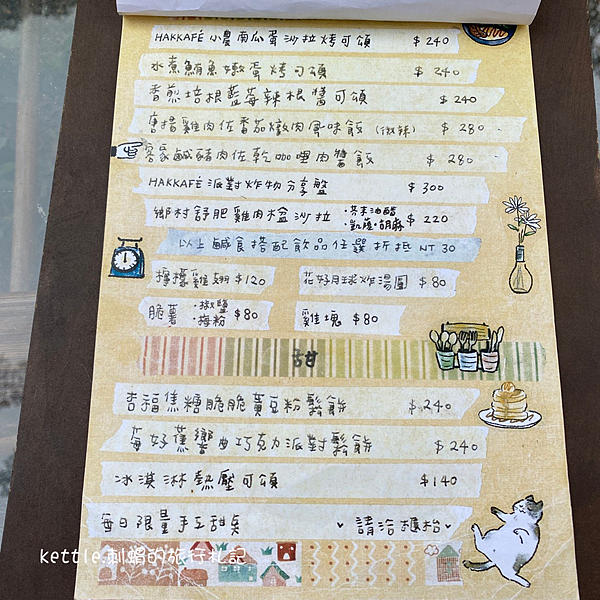 HAKKAFÉ 小農南瓜蛋沙拉烤可頌 $240
水煮鮪魚嫩蛋烤可頌 $240
香煎培根藍莓辣根醬可頌 $240
唐揚雞肉佐番茄燉肉風味飯 (微辣) $280
客家鹹豬肉佐乾咖哩肉醬飯 $280
HAKKAFÉ 派對炸物分享盤 $300
鄉村舒肥雞肉榅沙拉 ·芥末油醋 ·凱薩·胡麻 $220
以上鹹食搭配飲品任選折抵 NT 30
檸檬雞翅 $120
花好月球炸湯圓 $80
脆薯 ·椒鹽 ·梅粉 $80
雞塊 $80
甜
杏福焦糖脆脆黃豆粉鬆餅 $240
莓好蕉響曲巧克力派對鬆餅 $240
冰淇淋熱壓可頌 $140
每日限量手工甜点 請洽櫃枱
kettle.刺蝟的旅行札記